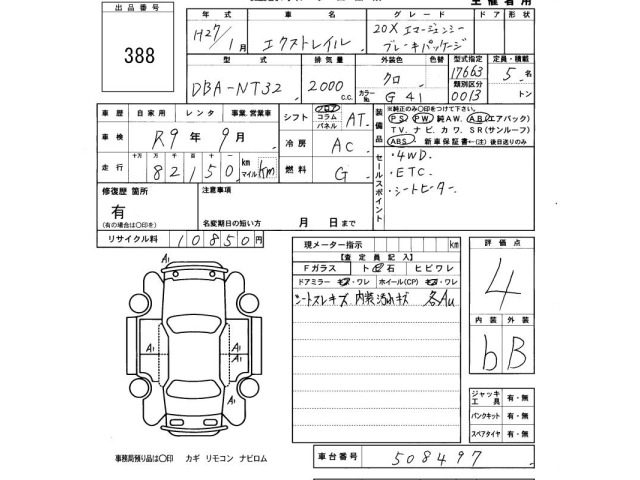 出品番号
388
年式 車名 グレード ドア 形状
H27/1月 エクストレイル 20X エマージェンシー
ブレーキパッケージ
型式 排気量 外装色 色替 型式指定 定員・積載
DBA-NT32 2000 C.C. クロ 17663 5 名
カラーNo. G41 類別区分 0013 トン
車歴 自家用 レンタ 事業.営業車
車検 R9年 9月
走行 十万 万 千 百 十 一 km マイル
82150 km
シフト フロア コラム パネル AT.
冷房 AC
燃料 G
装備品
※純正のみ〇印をつけて下さい。
PS PW 純AW. AB(エアバック)
TV. ナビ. カワ. SR(サンルーフ)
ABS. 新車保証書←(注)後日送りのみ
セールスポイント
・4WD.
・ETC.
・シートヒーター.
修復歴 箇所
有
(有の場合は〇印を)
注意事項
名変期日の短い方 月 日まで
リサイクル料 10850円
現メーター指示 km
【査定員記入】
Fガラス ト 石 ヒビワレ
ドアミラー キズ・ワレ ホイール(CP) キズ・ワレ
シートスレキズ 内装汚れキズ 各AU
評価点
4
内装 外装
b B
A1
A1
A1
A1
A1
ジャッキ 工具 有・無
パンクキット 有・無
スペアタイヤ 有・無
事務局預り品は〇印 カギ リモコン ナビロム
車台番号 508497